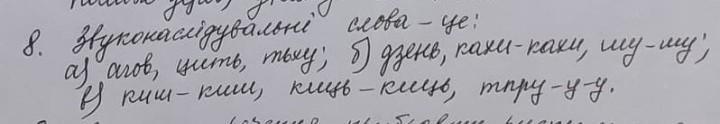 8. Звуконаслідувальні слова – це:
а) агов, цить, тьху; б) дзень, кахи-кахи, му-му;
в) киш-киш, киць-киць, тпру-у-у.